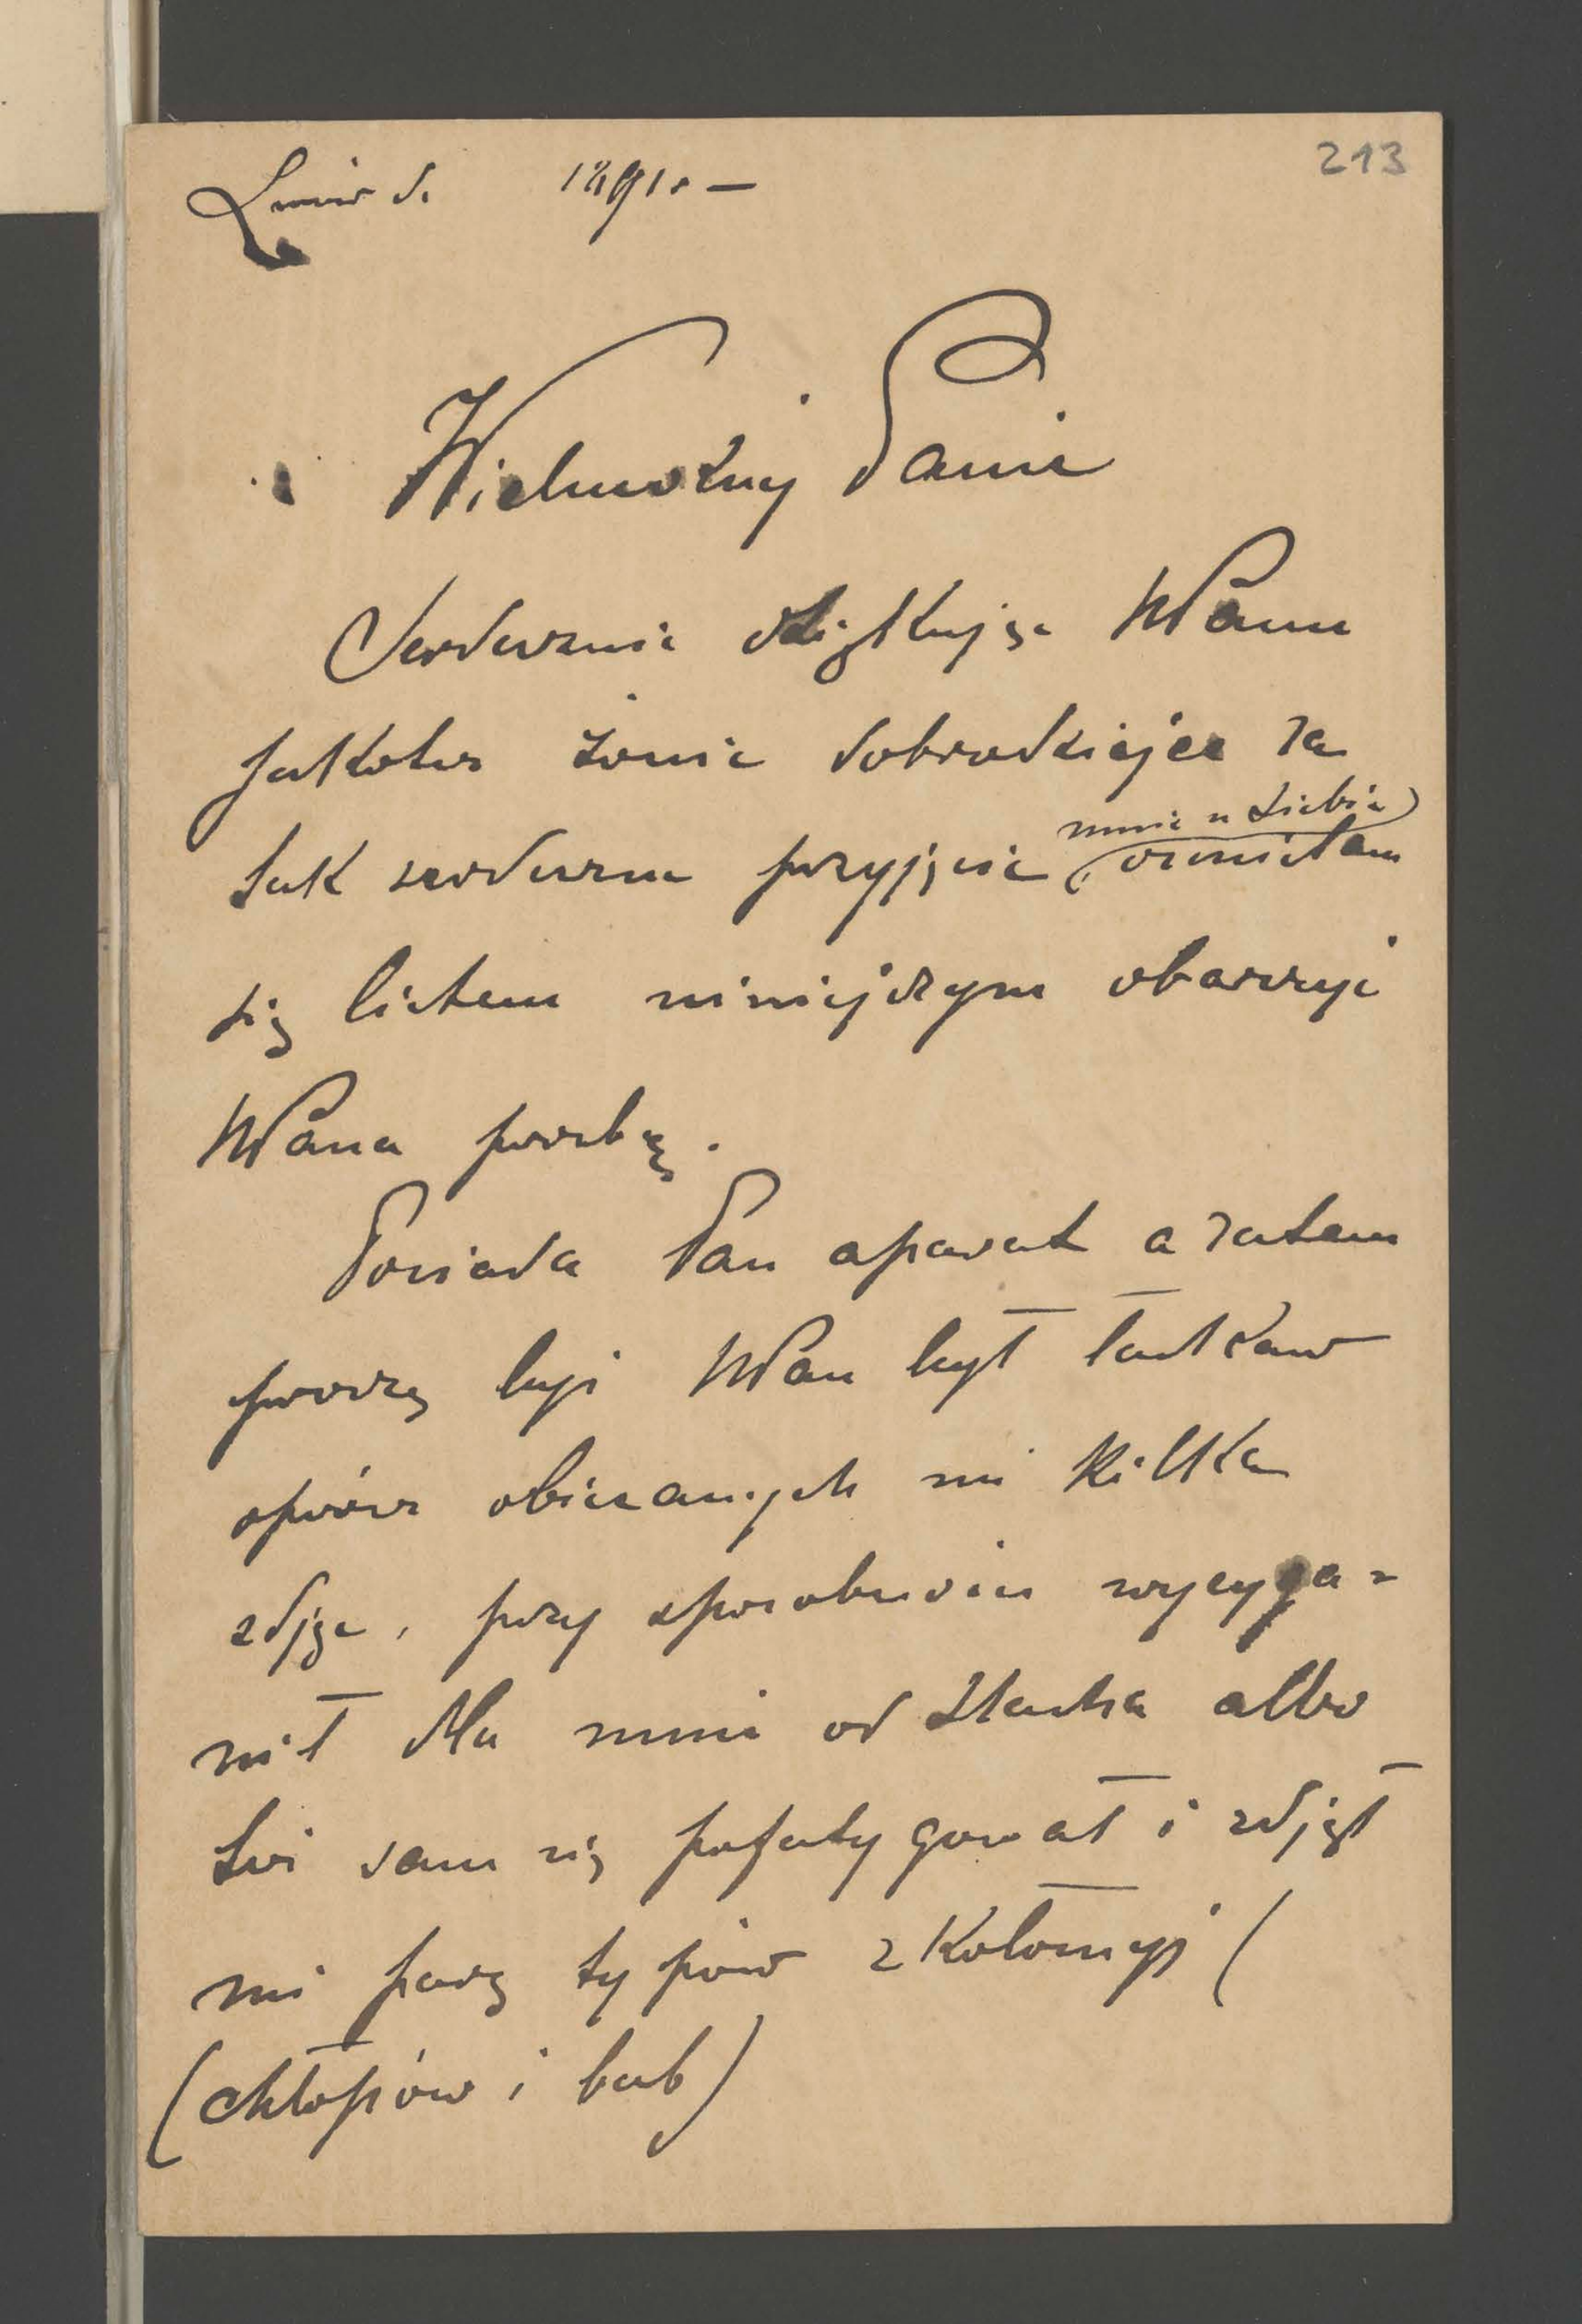 213
Lwów d. 1891. —
Wielmożny Panie
Serdecznie dziękując WPanu
jakoteż żonie dobrodziejce za
tak serdeczne przyjęcie mnie u siebie, ośmielam
się listem niniejszym obarczyć
WPana prośbą.
Posiada Pan aparat a zatem
proszę byś WPan był łaskaw
oprócz obiecanych mi kilka
zdjęć, przy sposobności wycyga=
nił dla mnie od Stacha albo
też sam się pofatygował i zdjął
mi parę typów z Kołomyji
(chłopów i bab)